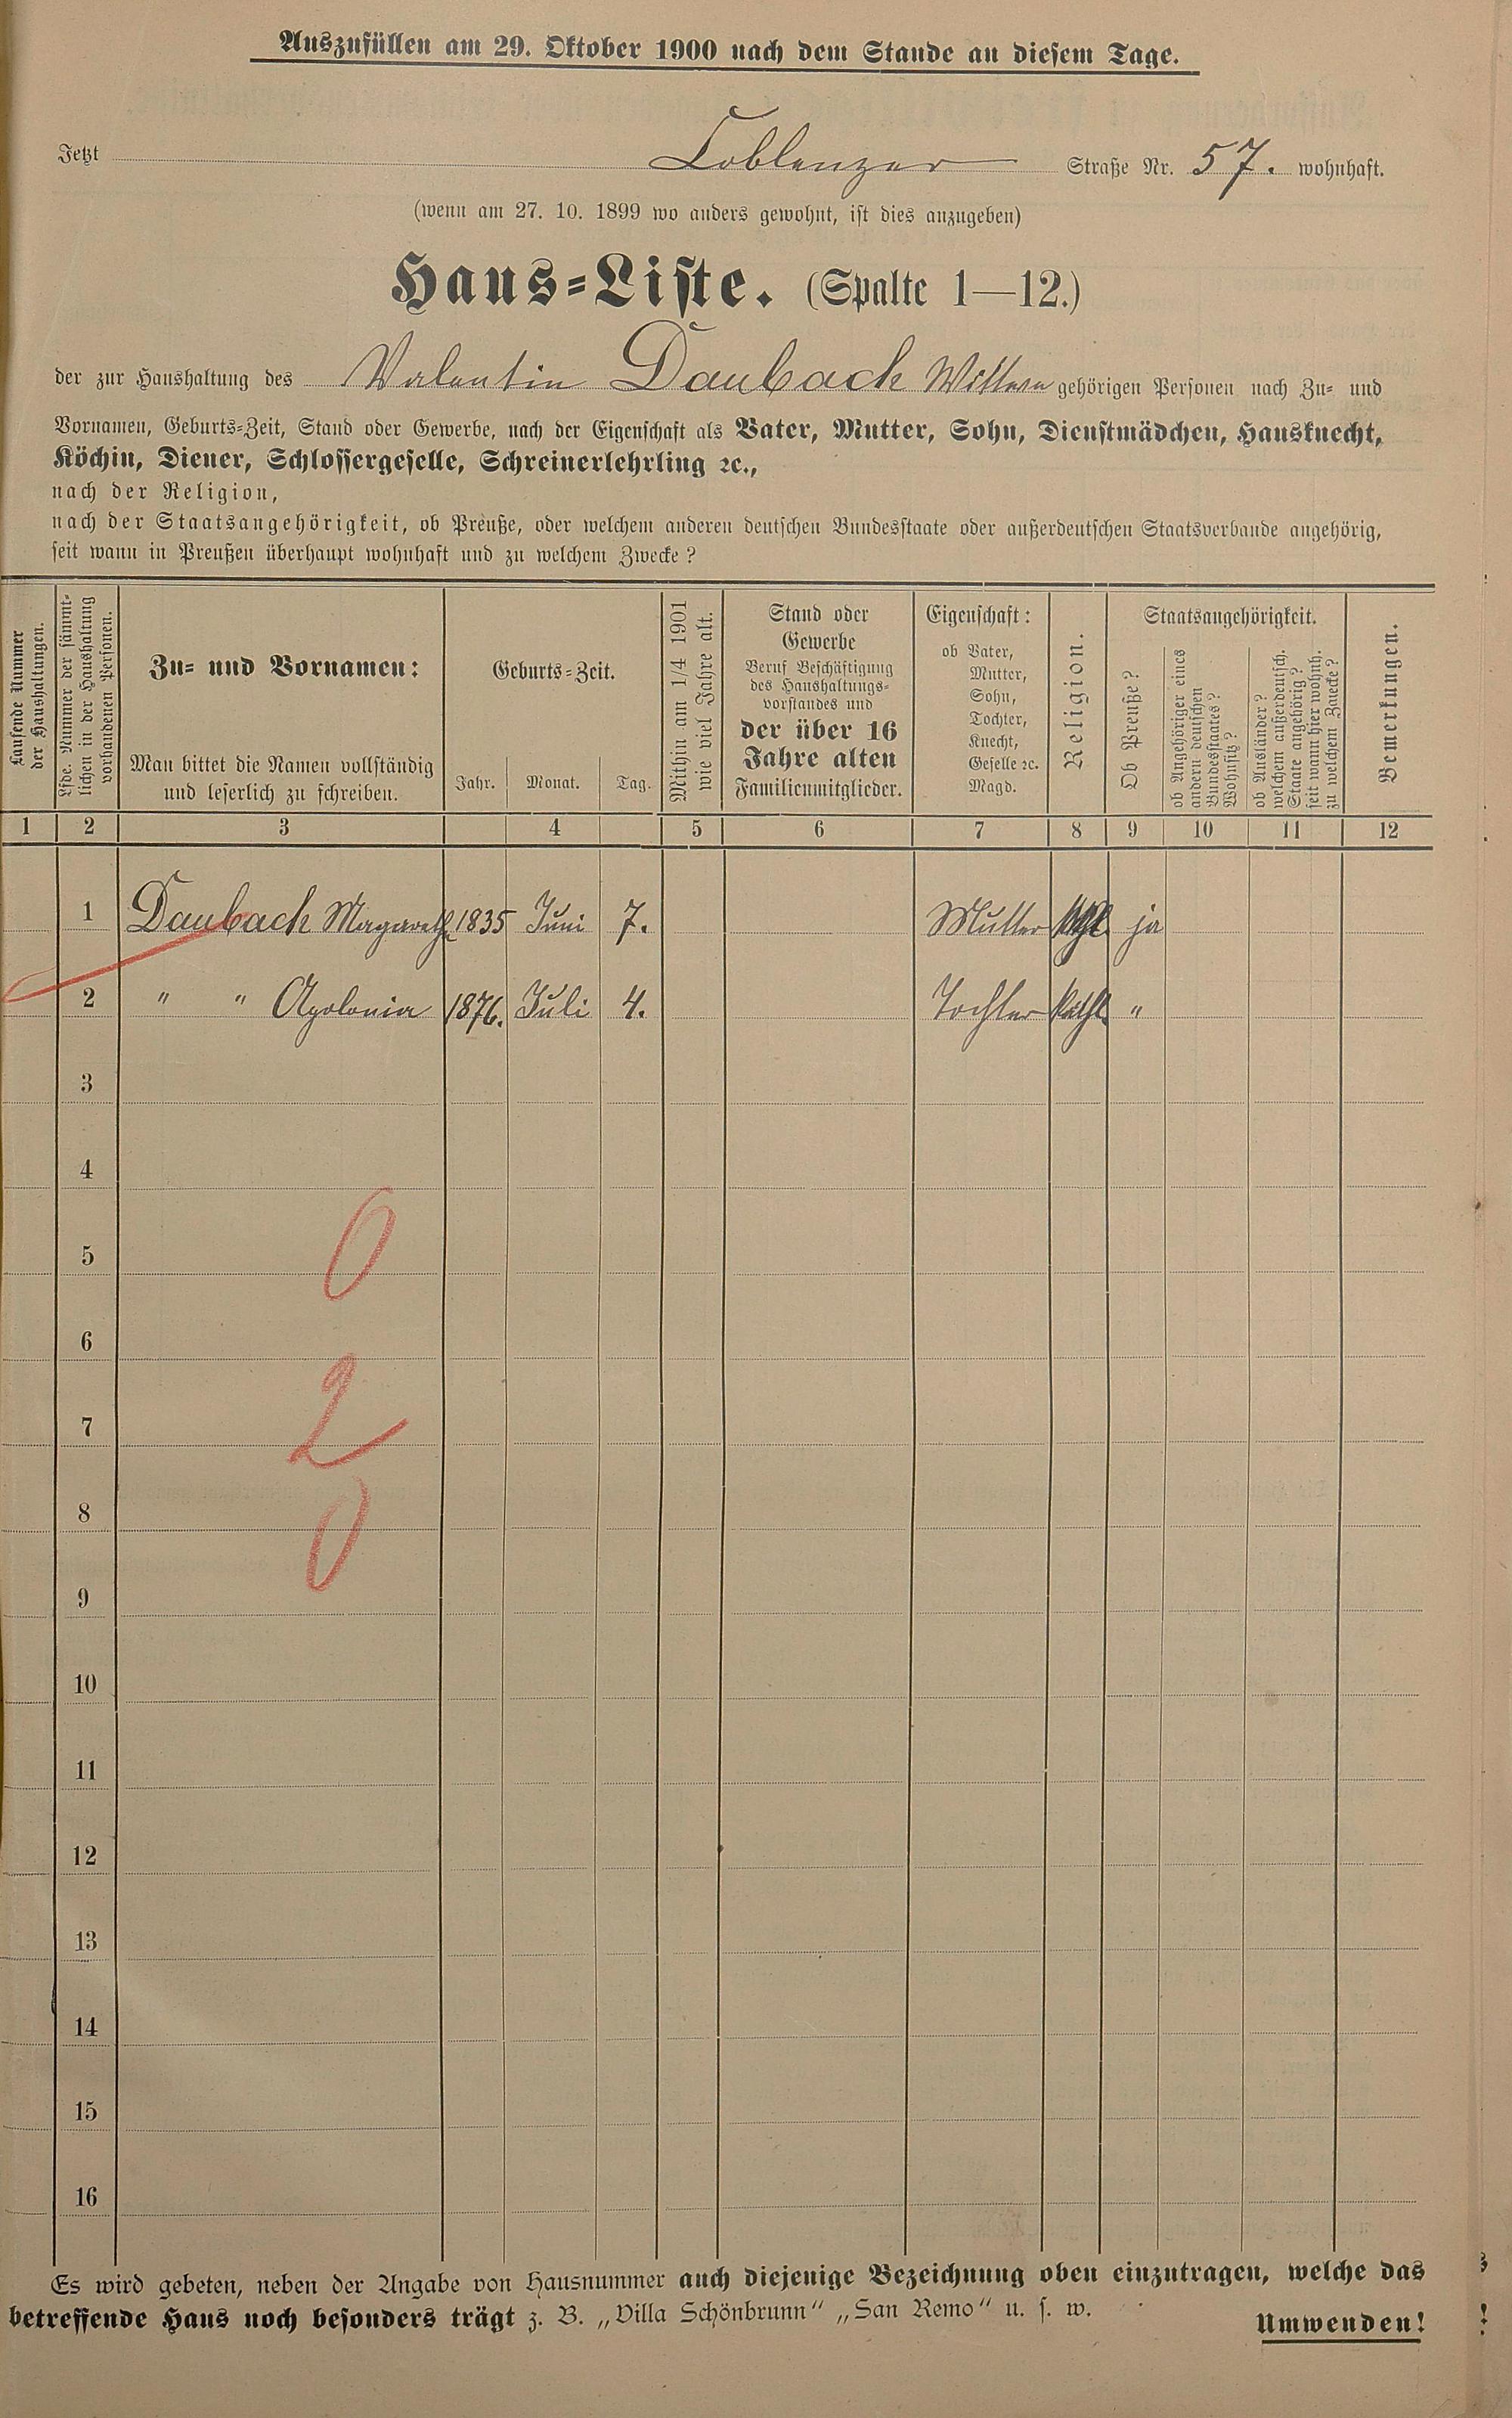 Auszufüllen am 29. Oktober 1900 nach dem Stande an diesem Tage.
Jetzt Coblenzer Straße Nr. 57. wohnhaft.
(wenn am 27. 10. 1899 wo anders gewohnt, ist dies anzugeben)
Haus-Liste. (Spalte 1—12.)
der zur Haushaltung des Valentin Daubach Wittwe gehörigen Personen nach Zu- und
Vornamen, Geburts-Zeit, Stand oder Gewerbe, nach der Eigenschaft als Vater, Mutter, Sohn, Dienstmädchen, Hausknecht,
Köchin, Diener, Schlossergeselle, Schreinerlehrling ꝛc.,
nach der Religion,
nach der Staatsangehörigkeit, ob Preuße, oder welchem anderen deutschen Bundesstaate oder außerdeutschen Staatsverbande angehörig,
seit wann in Preußen überhaupt wohnhaft und zu welchem Zwecke?
Laufende Nummer
der Haushaltungen.
Lfde. Nummer der sämmt-
lichen in der Haushaltung
vorhandenen Personen.
Zu- und Vornamen:
Man bittet die Namen vollständig
und leserlich zu schreiben.
Geburts-Zeit.
Jahr. Monat. Tag.
Mithin am 1/4 1901
wie viel Jahre alt.
Stand oder
Gewerbe
Beruf Beschäftigung
des Haushaltungs-
vorstandes und
der über 16
Jahre alten
Familienmitglieder.
Eigenschaft:
ob Vater,
Mutter,
Sohn,
Tochter,
Knecht,
Geselle ꝛc.
Magd.
Religion.
Staatsangehörigkeit.
Ob Preuße?
ob Angehöriger eines
andern deutschen
Bundesstaates?
Wohnsitz?
ob Ausländer?
welchem außerdeutsch.
Staate angehörig?
seit wann hier wohnh.
zu welchem Zwecke?
Bemerkungen.
1 2 3 4 5 6 7 8 9 10 11 12
1 Daubach Magareth 1835 Juni 7. Mutter ja
2 " " Apolonia 1876. Juli 4. Tochter kathl. "
3
4
0
5
6
2
7
8
0
9
10
11
12
13
14
15
16
Es wird gebeten, neben der Angabe von Hausnummer auch diejenige Bezeichnung oben einzutragen, welche das
betreffende Haus noch besonders trägt z. B. „Villa Schönbrunn" „San Remo" u. s. w.
Umwenden!